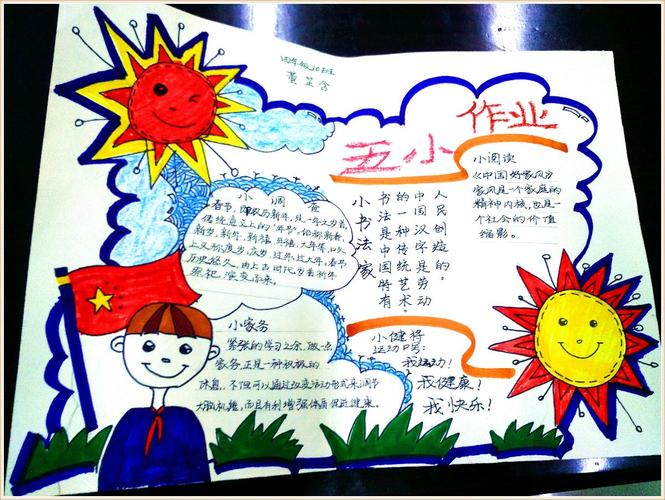 四年级10班
董芷含
五小
作业
小调查
春节，即农历新年，是一年之岁首，
传统意义上的“年节”。俗称新春、
新岁、新年、新禧、年禧、大年等，口头
上又称度岁、庆岁、过年、过大年。春节
历史悠久，由上古时代岁首祈年
祭祀演变而来。
小书法家
书法是中国特有
的一种传统艺术
中国汉字是劳动
人民创造的。
小阅读
《中国好家风》
家风是一个家庭的
精神内核，也是一
个社会的价值
缩影。
小家务
紧张的学习之余，做一点
家务正是一种积极的
休息，不但可以通过改变活动形式来调节
大脑机能，而且有利增强体质促进健康。
小健将
运动口号：
我运动！
我健康！
我快乐！